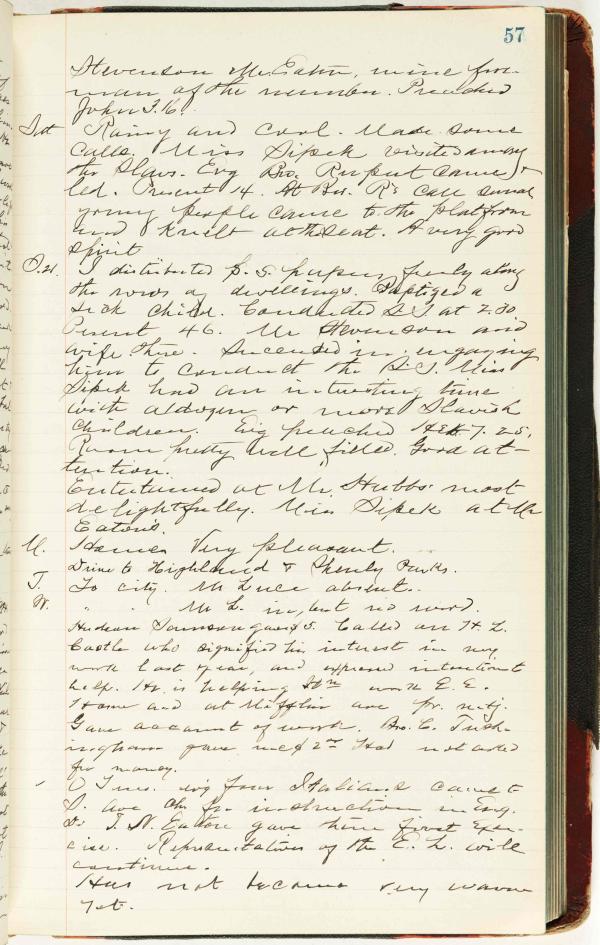 57
Stevenson Mr. Eaton, mine fore-
man of the number. Preached
John 3.16.
Sat Rainy and Cool. Made some
calls. Miss Sipek visited among
the Slavs. Evg Bro. Rupert came &
led. Present 14. At Bro. R's call several
young people came to the platform
and knelt at the seat. A very good
spirit
I distributed S. S. papers freely along
the rows of dwellings. Baptized a
sick child. Conducted S.S. at 2.30.
Present 46. Mr Stevenson and
wife there. Succeeded in engaging
him to conduct the Miss
Sipek had an interesting time
with a dozen or more Slavish
children. Evg preached Heb 7.25.
Room pretty well filled. Good at-
tention.
Entertained at Mr. Stubbs most
delightfully. Miss Sipek at Mr
Eatons.
M. Home. Very pleasant.
Drive to Highland & Shenly Parks.
T. To city. Mr Luce absent.
W. " " Mr L. in, but no word.
Hudson Samson gave $5. Called on H. L.
Castle who signified his interest in my
work last year, and expressed intention to
help. He is helping work E. E.
Home and at Mifflin ave pr. mtg.
Gave account of work. Bro. C. Tush-
ingham gave me $2 Had not asked
for money.
evg four Italians came to
ave Ch. for instruction in Eng.
Dr T. N. Eaton gave them first Exer-
cise. Representatives of the E. L. will
continue.
Has not become very warm
yet.